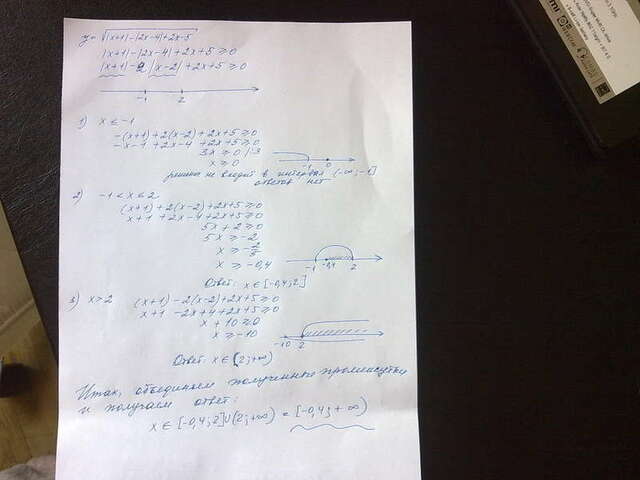 y=√|x+1|-|2x-4|+2x-5
|x+1|-|2x-4|+2x+5≥0
|x+1|-2|x-2|+2x+5≥0
-1 2
1) x≤-1
-(x+1)+2(x-2)+2x+5≥0
-x-1+2x-4+2x+5≥0
3x≥0 |:3
x≥0
-1 0
решение не входит в интервал (-∞;-1]
ответов нет
2) -1<x≤2
(x+1)+2(x-2)+2x+5≥0
x+1+2x-4+2x+5≥0
5x+2≥0
5x≥-2
x≥-2/5
x≥-0,4
-1 -0,4 2
Ответ: x∈[-0,4;2]
3) x>2 (x+1)-2(x-2)+2x+5≥0
x+1-2x+4+2x+5≥0
x+10≥0
x≥-10
-10 2
Ответ: x∈(2;+∞)
Итак, объединяем полученные промежутки
и получаем ответ:
x∈[-0,4;2]∪(2;+∞)=[-0,4;+∞)
mi